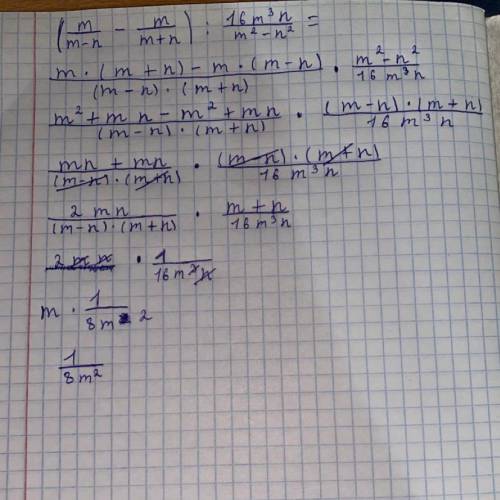 (m/(m-n) - m/(m+n)) : 16m³n/(m²-n²) =
(m·(m+n)-m·(m-n))/((m-n)·(m+n)) · (m²-n²)/(16m³n)
(m²+mn-m²+mn)/((m-n)·(m+n)) · ((m-n)·(m+n))/(16m³n)
(mn+mn)/((m-n)·(m+n)) · ((m-n)·(m+n))/(16m³n)
2mn/((m-n)·(m+n)) · (m+n)/(16m³n)
· 1/(16m³n)
m · 1/(8m 2
1/(8m²)